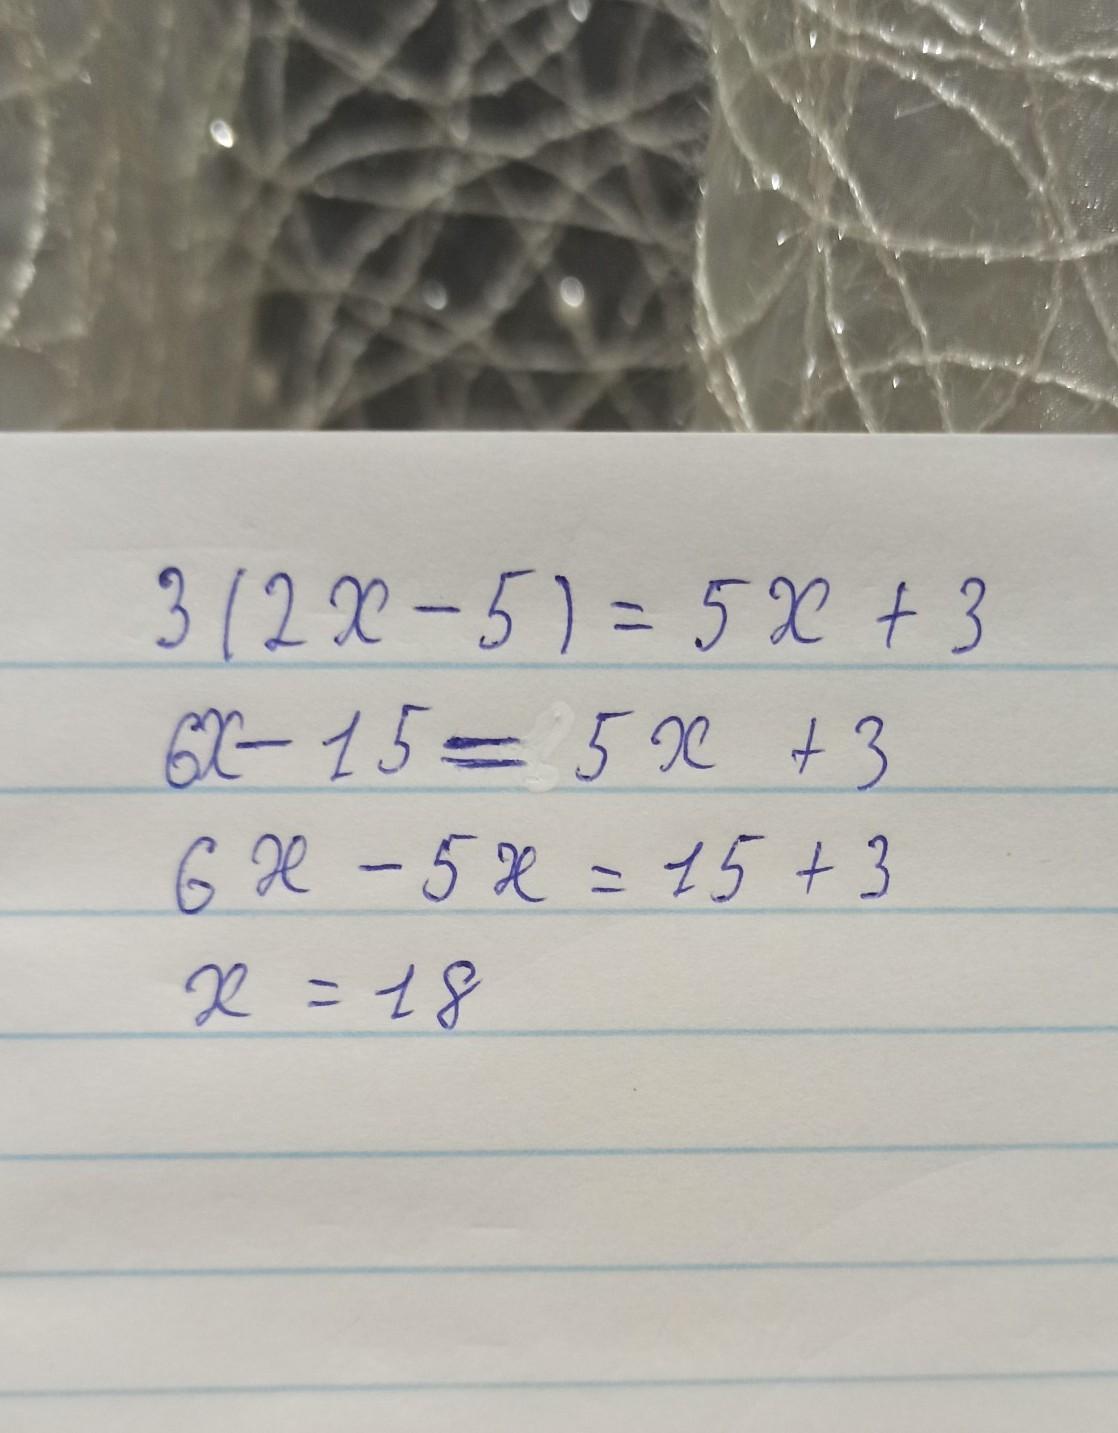 3(2x-5) = 5x + 3
6x - 15 = 5x + 3
6x - 5x = 15 + 3
x = 18